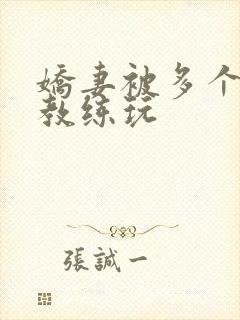 嬌妻被多个
教练玩
張誠一